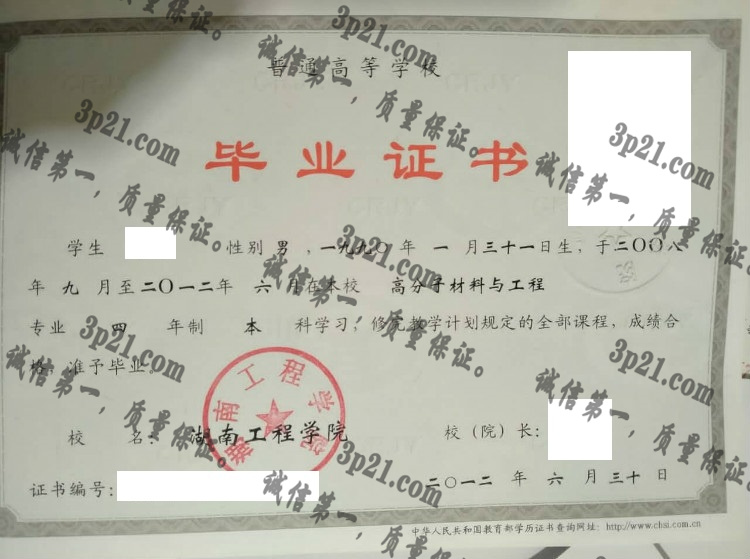 普通高等学校
毕业证书
学生 性别 男 ，一九九〇 年 一 月 三十一日生，于二〇〇八
年 九 月至二〇一二年 六 月在本校 高分子材料与工程
专业 四 年制 本 科学习，修完教学计划规定的全部课程，成绩合
格，准予毕业。
校 名： 湖南工程学院
校（院）长：
证书编号：
二〇一二 年 六 月 三十 日
中华人民共和国教育部学历证书查询网址：http://www.chsi.com.cn
湖南工程学院
3p21.com
诚信第一，质量保证。
3p21.com
诚信第一，质量保证。
3p21.com
诚信第一，质量保证。
3p21.com
诚信第一，质量保证。
3p21.com
诚信第一，质量保证。
3p21.com
诚信第一，质量保证。
3p21.com
诚信第一，质量保证。